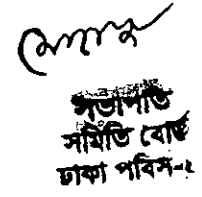 সভাপতি
সমিতি বোর্ড
ঢাকা পবিস-২